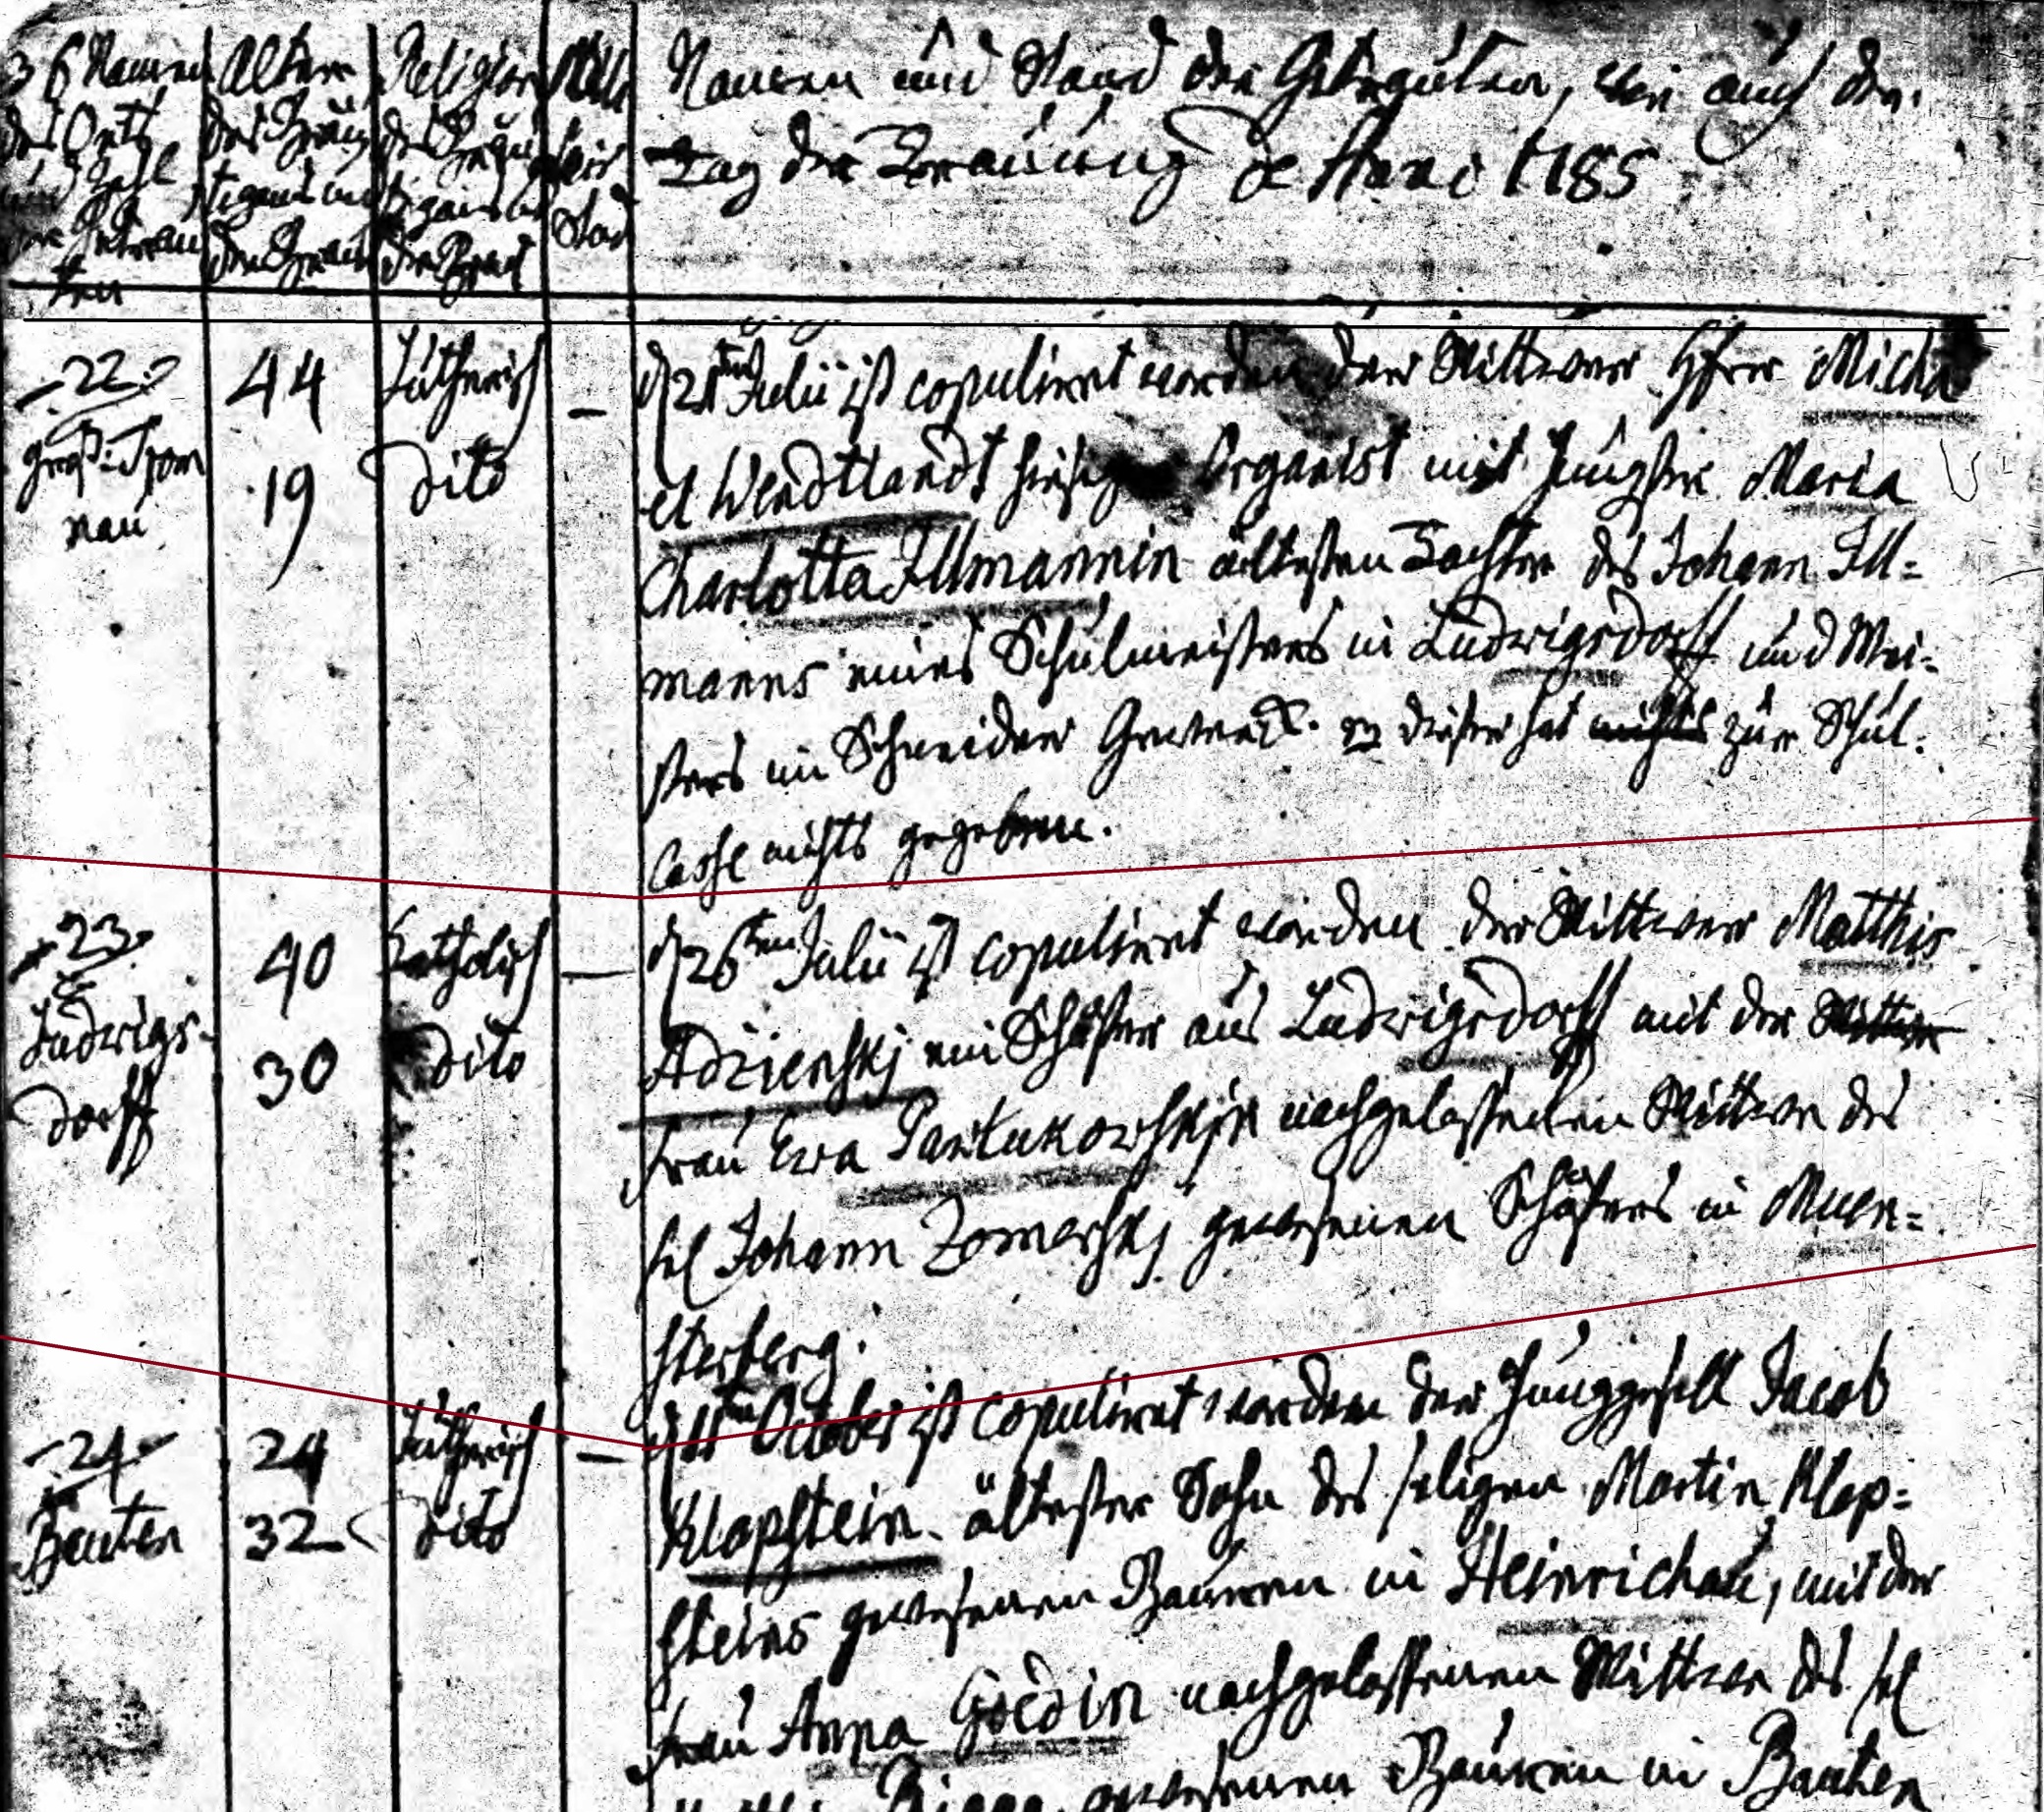 36 Namen
des Orts
und Zahl
der Getrau
ten
Alter
des Bräu
tigams und
der Braut
Religion
des Bräu
tigams und
der Braut
Mili
tair
Stad
Namen und Stand der Getrauten, wie auch der
Tag der Trauung de Anno 1785
22.
Groß-Trom
nau
44
19
Lutherisch
dito
—
d 21ten Julii ist copulirt worden der Wittwer Herr Micha
el Wendtlandt hiesiger Organist mit Jungfer Maria
Charlotta Illmannin ältesten Tochter des Johann Ill=
manns eines Schulmeisters in Ludwigsdorff und Mei=
sters im Schneider Gewerck. dieser hat nichts zur Schul=
Casse nichts gegeben.
23.
Ludwigs-
dorff
40
30
Catholisch
dito
—
d 26ten Julii ist copulirt worden der Wittwer Matthis
Adzienskj ein Schäffer aus Ludwigsdorff mit der Wittwe
Frau Ewa Partukowskjn nachgelassenen Wittwe des
sel Johann Zomerskj gewesenen Schäffers in Muen=
sterberg.
24
Bauten
24
32
Lutherisch
dito
—
October ist copulirt worden der Junggesell Jacob
Klopstein ältester Sohn des seligen Martin Klop=
steins gewesenen Bauren in Heinrichau, mit der
Frau Anna Goedin nachgelassenen Wittwe des sel
gewesenen Bauren in Bauten